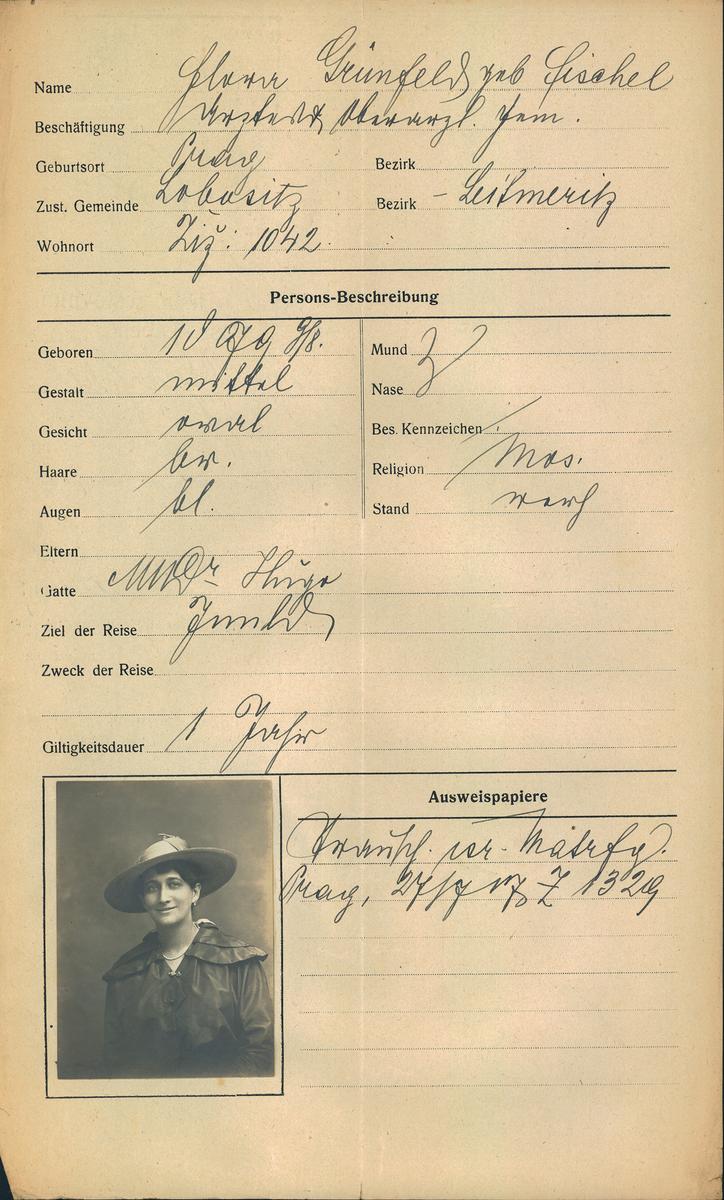 Name Flora Grünfeld geb Fischel
Beschäftigung Arztens Oberarzt.
Geburtsort Prag Bezirk
Zust. Gemeinde Lobositz Bezirk - Leitmeritz
Wohnort Žiž: 1042.
Persons-Beschreibung
Geboren
Mund
Gestalt mittel
Nase
Gesicht oval
Bes. Kennzeichen
Haare br.
Religion Mos.
Augen bl.
Stand verh
Eltern
Gatte MUDr Hugo
Ziel der Reise Inld
Zweck der Reise
Giltigkeitsdauer 1 Jahr
Ausweispapiere
Trausch. isr. Matrfg.
Prag, 27/7 Z 1329